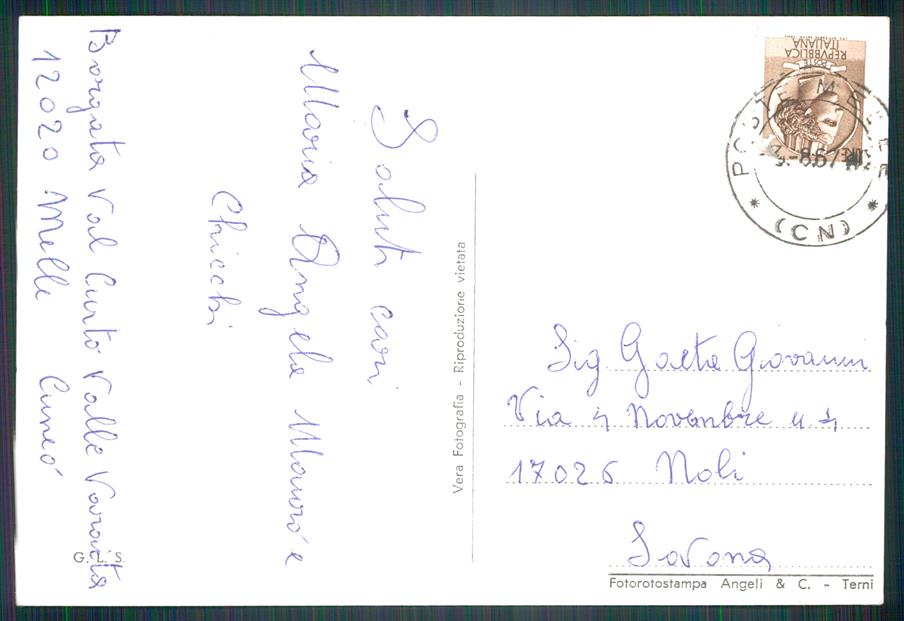 Saluti cari
Maria Angela Mauro e
Chicchi
Borgata Val Curto Valle Varaita
12020 Melle Cuneo
G. L. S.
Vera Fotografia - Riproduzione vietata
REPVBBLICA
ITALIANA
POSTE
POSTE MELLE
-8.67
(CN)
Sig Gaeta Giovanni
Via 4 Novembre n 4
17026 Noli
Savona
Fotorotostampa Angeli & C. - Terni